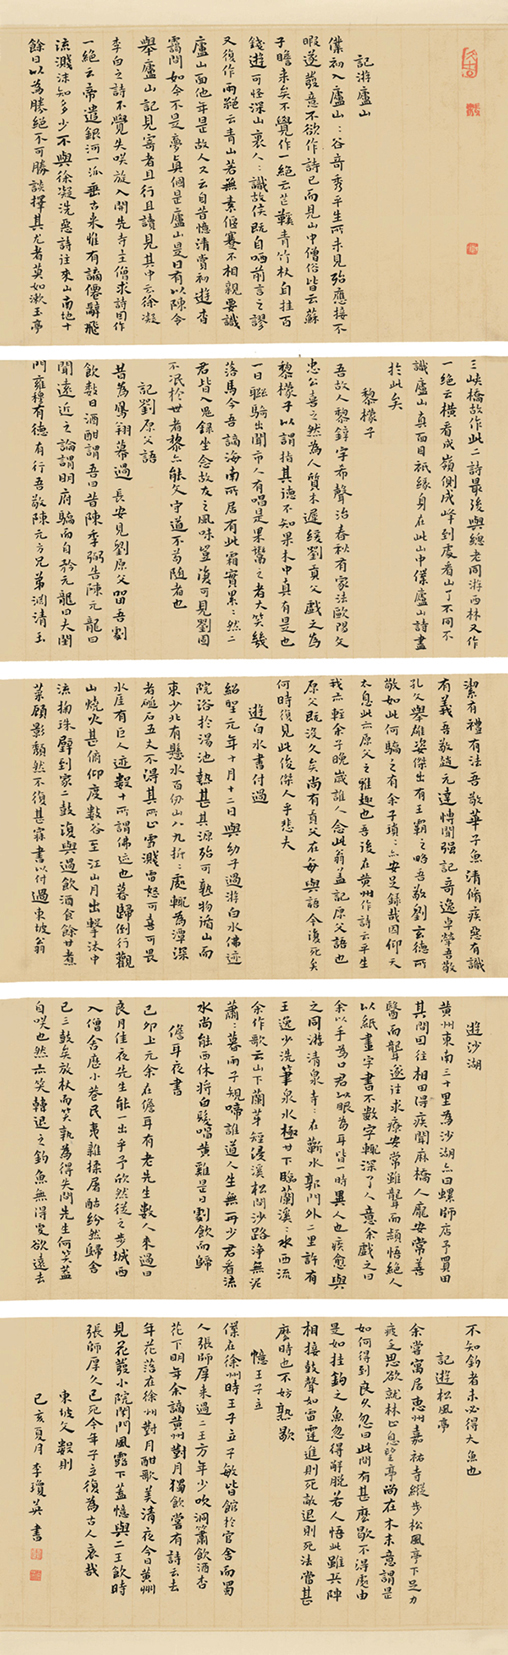 記游廬山
僕初入廬山山谷奇秀平生所未見殆應接不
暇遂發意不欲作詩已而見山中僧俗皆云蘇
子瞻來矣不覺作一絕云芒鞵青竹杖自挂百
錢遊可怪深山裏人人識故侯既自哂前言之謬
又復作兩絕云青山若無素偃蹇不相親要識
廬山面他年是故人又云自昔憶清賞初遊杳
靄間如今不是夢真個是廬山是日有以陳令
舉廬山記見寄者且行且讀見其中云徐凝
李白之詩不覺失笑旋入開先寺主僧求詩因作
一絕云帝遣銀河一派垂古來惟有謫僊辭飛
流濺沫知多少不與徐凝洗惡詩往來山南地十
餘日以為勝絕不可勝談擇其尤者莫如漱玉亭
三峽橋故作此二詩最後與總老同游西林又作
一絕云橫看成嶺側成峰到處看山了不同不
識廬山真面目祇緣身在此山中僕廬山詩盡
於此矣
黎檬子
吾故人黎錞字希聲治春秋有家法歐陽文
忠公喜之然為人質木遲緩劉貢父戲之為
黎檬子以謂指其德不知果木中真有是也
一日聯騎出聞市人有唱是果鬻之者大笑幾
落馬今吾謫海南所居有此霜實累累然二
君皆入鬼錄坐念故友之風味豈復可見劉固
不泯於世者黎亦能文守道不苟隨者也
記劉原父語
昔為鳳翔幕過長安見劉原父留吾劇
飲數日酒酣謂吾曰昔陳季弼告陳元龍曰
聞遠近之論謂明府驕而自矜元龍曰夫閨
門雍穆有德有行吾敬陳元方兄弟淵清玉
潔有禮有法吾敬華子魚清脩疾惡有識
有義吾敬趙元達博聞强記奇逸卓犖吾敬
孔文舉雄姿傑出有王霸之略吾敬劉玄德所
敬如此何驕之有余子瑣瑣亦安足錄哉因仰天
太息此亦原父之雅趣也吾後在黃州作詩云平生
我亦輕余子晚歲誰人念此翁蓋記原父語也
原父既沒久矣尚有貢父在每與語今復死矣
何時復見此俊傑人乎悲夫
遊白水書付過
紹聖元年十月十二日與幼子過游白水佛迹
院浴於湯池熱甚其源殆可熟物循山而
東少北有懸水百仞山八九折折處輒為潭深
者磓石五丈不得其所止雪濺雷怒可喜可畏
水厓有巨人迹數十所謂佛迹也暮歸倒行觀
山燒火甚俯仰度數谷至江山月出擊汰中
流掬珠璧到家二鼓復與過飲酒食餘甘煮
菜顧影頹然不復甚寐書以付過東坡翁
遊沙湖
黃州東南三十里為沙湖亦曰螺師店予買田
其間因往相田得疾聞麻橋人龐安常善
醫而聾遂往求療安常雖聾而穎悟絕人
以紙畫字書不數字輒深了人意余戲之曰
余以手為口君以眼為耳皆一時異人也疾愈與
之同游清泉寺寺在蘄水郭門外二里許有
王逸少洗筆泉水極甘下臨蘭溪溪水西流
余作歌云山下蘭芽短浸溪松間沙路淨無泥
蕭蕭暮雨子規啼誰道人生無再少君看流
水尚能西休將白髮唱黃雞是日劇飲而歸
儋耳夜書
己卯上元余在儋耳有老先生數人來過曰
良月佳夜先生能一出乎予欣然從之步城西
入僧舍歷小巷民夷雜揉屠酤紛然歸舍
已三鼓矣放杖而笑孰為得失問先生何笑蓋
自笑也然亦笑韓退之釣魚無得更欲遠去
不知釣者未必得大魚也
記遊松風亭
余嘗寓居惠州嘉祐寺縱步松風亭下足力
疲乏思欲就林止息望亭尚在木末意謂是
如何得到良久忽曰此間有甚麼歇不得處由
是如挂鈎之魚忽得解脫若人悟此雖兵陣
相接鼓聲如雷霆進則死敵退則死法當甚
麼時也不妨熟歇
憶王子立
僕在徐州時王子立子敏皆館於官舍而蜀
人張師厚來過二王方年少吹洞簫飲酒杏
花下明年余謫黃州對月獨飲嘗有詩云去
年花落在徐州對月酣歌美清夜今日黃州
見花發小院閉門風露下蓋憶與二王飲時
張師厚久已死今年子立復為古人哀哉
東坡文數則
己亥夏月李瓊英書